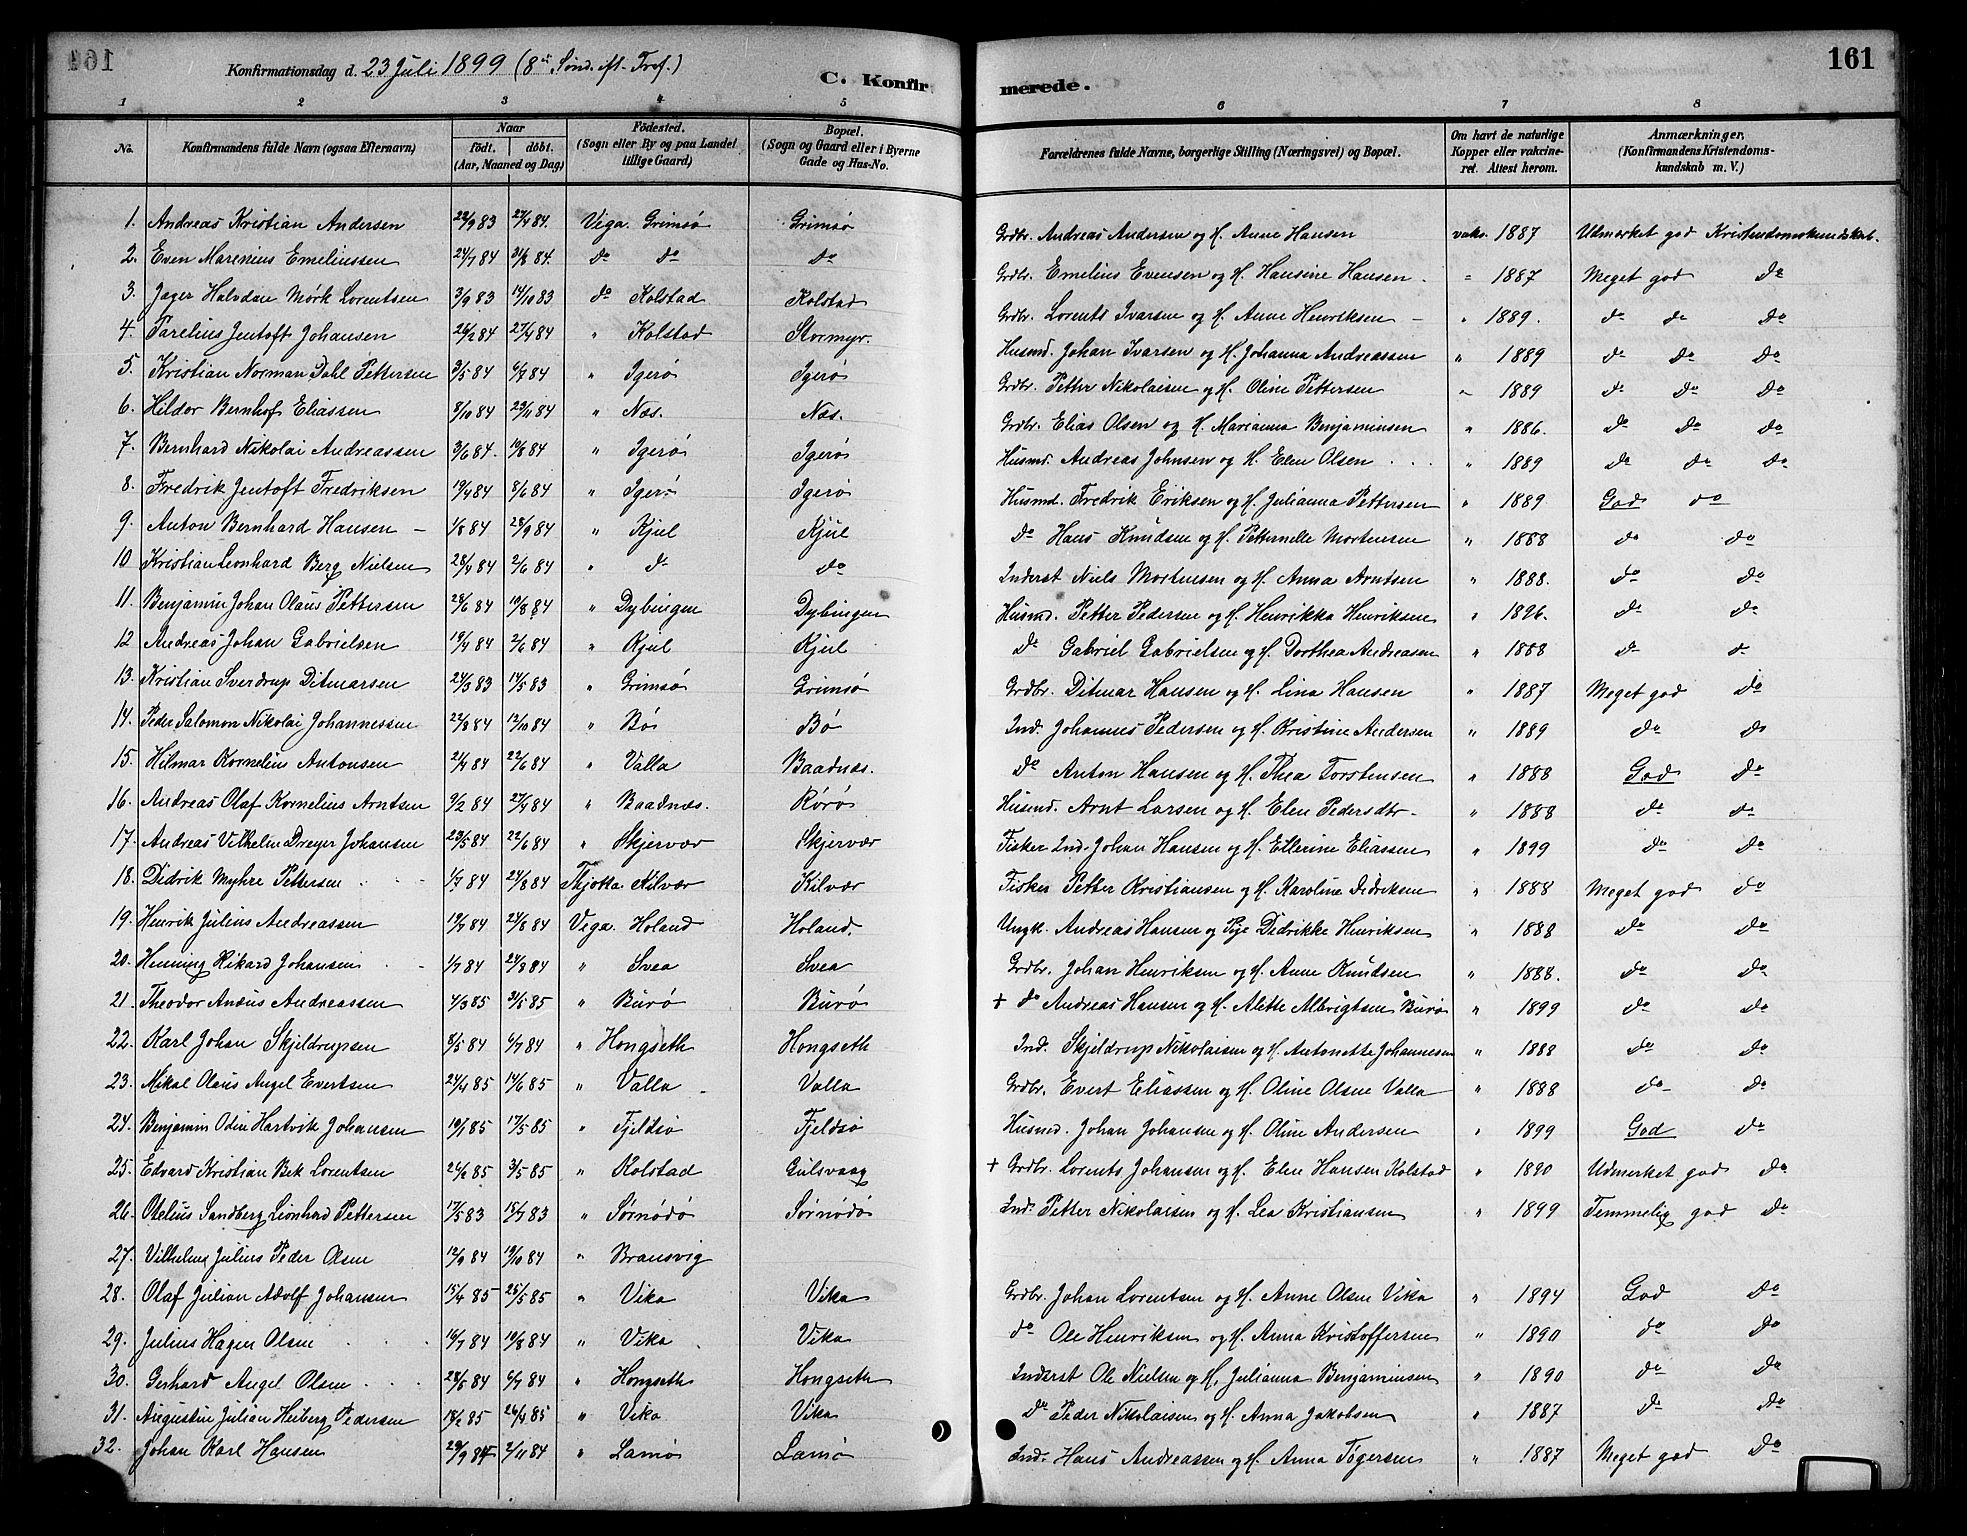 Konfirmationsdag d. 23 Juli 1899 (8de Sønd. eft. Tref.)
C. Konfir
merede.
161
1 2 3 4 5 6 7 8
No. | Konfirmandens fulde Navn (ogsaa Efternavn) | Naar født. døbt. (Aar, Maaned og Dag) | Fødested. (Sogn eller By og paa Landet tillige Gaard) | Bopæl. (Sogn og Gaard eller i Byerne Gade og Hus-No. | Forældrenes fulde Navne, borgerlige Stilling (Næringsvei) og Bopæl. | Om havt de naturlige Kopper eller vakcineret. Attest herom. | Anmærkninger, (Konfirmandens Kristendomskundskab m. V.)
1. Andreas Kristian Andersen 22/9 83 27/4 84. Vega. Grimsø Grimsø Grdbr. Andreas Andersen og H. Anne Hansen vaks. 1887 Udmerket god Kristendomskundskab.
2. Even Marenius Emeliussen 24/7 84 31/8 84. do do do Grdbr. Emelius Evensen og H. Hansine Hansen " 1887 Meget god do
3. Jager Halvdan Mørk Lorentsen 3/9 83 14/10 83 do Kolstad Kolstad Grdbr. Lorents Ivarsen og H. Anne Henriksen " 1889. do do do
4. Parelius Jentoft Johansen 26/2 84 27/4 84 " Kolstad Stormyr. Husmd. Johan Ivarsen og H. Johanna Andreassen " 1889 do do do
5. Kristian Norman Dahl Pettersen 3/5 84 6/7 84 " Igerø Igerø Grdbr. Petter Nikolaisen og H. Oline Pettersen " 1889 do do do
6. Hildor Bernhof Eliassen 8/10 84 23/11 84 " Nes. Nes. Grdbr. Elias Olsen og H. Marianna Benjaminsen " 1886. do do do
7. Bernhard Nikolai Andreassen 3/6 84. 10/8 84 " Igerø Igerø Husmd. Andreas Johnsen og H. Elen Olsen " 1889 do do do
8. Fredrik Jentoft Fredriksen 19/4 84 8/6 84 " Igerø Igerø Husmd. Fredrik Eriksen og H. Julianna Pettersen " 1889 God do
9. Anton Bernhard Hansen 1/8 84 28/9 84 " Kjul Kjul do Hans Knudsen og H. Petternelle Mortensen " 1888 do do
10 Kristian Leonhard Berg Nielsen 28/4 84 2/6 84 " do do Inderst Niels Mortensen og H. Anna Arntsen " 1888. do do
11. Benjamin Johan Olaus Pettersen 28/6 84 10/8 84 " Dybingen Dybingen Husmd. Petter Pedersen og H. Henrikka Henriksen " 1896. do do
12 Andreas Johan Gabrielsen 19/4 84 2/6 84 " Kjul Kjul do Gabriel Gabrielsen og H. Dorthea Andreasen " 1888 do do
13. Kristian Sverdrup Ditmarsen 24/3 83 14/5 83 " Grimsø Grimsø Grdbr. Ditmar Hansen og H. Lina Hansen " 1887 Meget god do
14. Peder Salomon Nikolai Johannessen 22/8 84 12/10 84 " Bø Bø Ind. Johannes Pedersen og H. Kristine Andersen " 1889 do do
15. Hilmar Kornelius Antonsen 2/4 84 22/6 84 " Valla Baadnæs. do Anton Hansen og H. Thea Torstensen " 1888 God do
16. Andreas Olaf Kornelius Arntsen 9/2 84 27/4 84 " Baadnæs. Rørø Husmd. Arnt Larsen og H. Elen Pedersdtr. " 1888 do do
17. Andreas Vilhelm Dreyer Johansen 23/5 84 22/6 84 " Skjervær Skjervær Fisker Ind. Johan Hansen og H. Ellerine Eliassen " 1899 do do
18. Didrik Myhre Pettersen 1/7 84 24/8 84 Thjøtta Kilvær Kilvær Fisker Petter Kristiansen og H. Karoline Didriksen " 1888 Meget god do
19. Henrik Julius Andreassen 19/7 84 24/8 84 Vega. Holand Holand. Ungk. Andreas Hansen og Pige Didrikke Henriksen " 1888 do do
20. Henning Rikard Johansen 1/7 84 24/8 84 " Svea Svea Grdbr. Johan Henriksen og H. Anne Knudsen " 1888. do do
21. Theodor Anæus Andreassen 4/3 85 31/5 85 " Burø Burø + do Andreas Hansen og H. Alette Albrigtsen Burø " 1899 do do
22. Karl Johan Skjeldrupsen 8/5 84 6/7 84 " Hongseth Hongseth Ind. Skjeldrup Nikolaisen og H. Antonette Johannesen " 1888 do do
23. Mikal Olaus Angel Evertsen 24/4 85 14/6 85 " Valla Valla Grdbr. Evert Eliassen og H. Oline Olsen Valla " 1888 do do
24. Benjamin Odin Hartvik Johansen 10/1 85 17/5 85 " Fjeldsø Fjeldsø Husmd. Johan Johansen og H. Oline Andersen " 1899 God do
25. Edvard Kristian Bek Lorentsen 24/2 85 3/5 85 " Kolstad Gulsvaag + Grdbr. Lorents Johansen og H. Elen Hansen Kolstad " 1890 Udmerket god do
26. Otelius Sandberg Leonhard Pettersen 17/5 83 15/7 83 " Sørnødø Sørnødø Ind. Petter Nikolaisen og H. Lea Kristiansen " 1899 Temmelig god do
27. Vilhelm Julius Peder Olsen 12/9 84 19/10 84 " Bransvig
28. Olaf Julian Adolf Johansen 15/4 85 25/5 85 " Vika Vika Grdbr. Johan Lorentsen og H. Anne Olsen Vika " 1894 God do
29. Julius Hagen Olsen 16/7 84 10/8 84 " Vika Vika do Ole Henriksen og H. Anna Kristoffersen " 1890 do do
30. Gerhard Angel Olsen 28/5 84 6/7 84 " Hongseth Hongseth Inderst Ole Nielsen og H. Julianna Benjaminsen " 1890 do do
31. Augustin Julian Heiberg Pedersen 18/2 85 26/4 85 " Vika Vika do Peder Nikolaisen og H. Anna Jakobsen " 1887 do do
32. Johan Karl Hansen 29/9 84 2/11 84 " Lamø Lamø Ind. Hans Andreassen og H. Anna Tøgersen " 1887 Meget god do